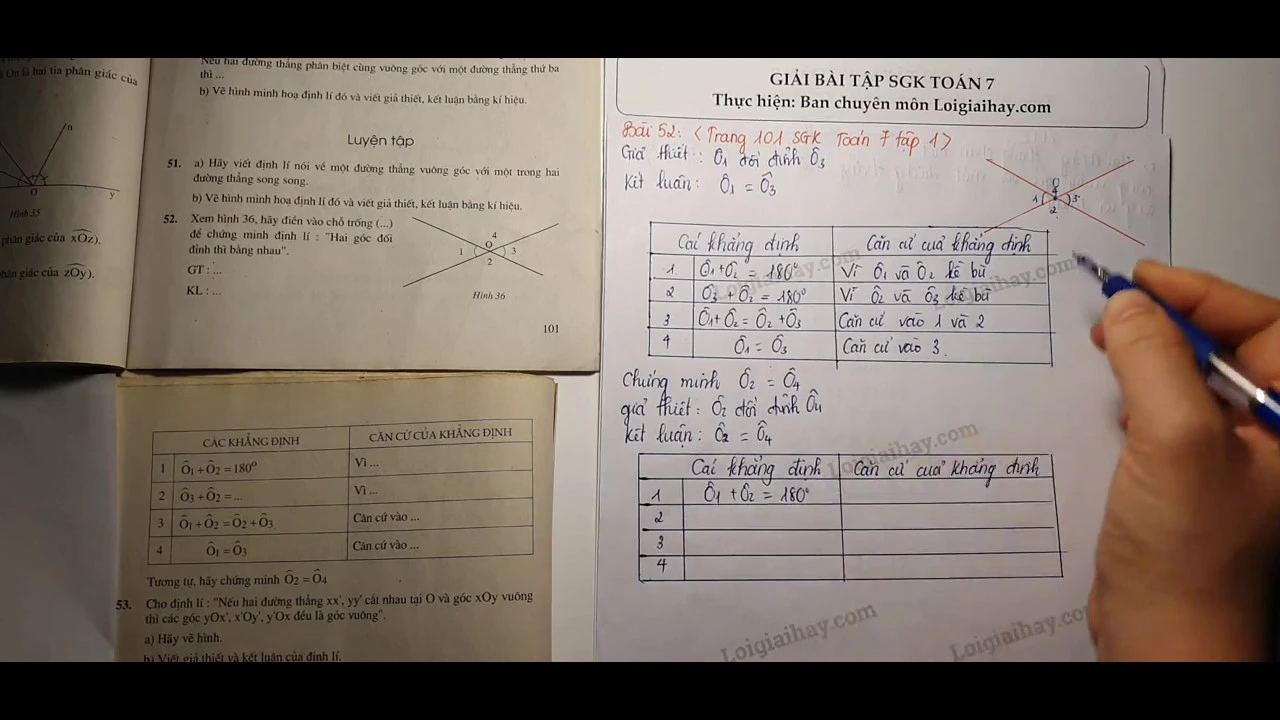 à On là hai tia phân giác của
n
O
y
Hình 35
phân giác của xOz).
phân giác của zOy).
Nếu hai đường thẳng phân biệt cùng vuông góc với một đường thẳng thứ ba
thì ...
b) Vẽ hình minh hoạ định lí đó và viết giả thiết, kết luận bằng kí hiệu.
Luyện tập
51. a) Hãy viết định lí nói về một đường thẳng vuông góc với một trong hai
đường thẳng song song.
b) Vẽ hình minh hoạ định lí đó và viết giả thiết, kết luận bằng kí hiệu.
52. Xem hình 36, hãy điền vào chỗ trống (...)
để chứng minh định lí : "Hai góc đối
đỉnh thì bằng nhau".
GT : ...
KL : ...
4
1 O 3
2
Hình 36
101
CÁC KHẲNG ĐỊNH CĂN CỨ CỦA KHẲNG ĐỊNH
1 Ô1 + Ô2 = 180° Vì ...
2 Ô3 + Ô2 = ... Vì ...
3 Ô1 + Ô2 = Ô2 + Ô3 Căn cứ vào ...
4 Ô1 = Ô3 Căn cứ vào ...
Tương tự, hãy chứng minh Ô2 = Ô4
53. Cho định lí : "Nếu hai đường thẳng xx', yy' cắt nhau tại O và góc xOy vuông
thì các góc yOx', x'Oy', y'Ox đều là góc vuông".
a) Hãy vẽ hình.
b) Viết giả thiết và kết luận của định lí.
GIẢI BÀI TẬP SGK TOÁN 7
Thực hiện: Ban chuyên môn Loigiaihay.com
Bài 52: < Trang 101 SGK Toán 7 tập 1 >
Giả thiết: Ô1 đối đỉnh Ô3
Kết luận: Ô1 = Ô3
O
4
1 3
2
Cái khẳng định Căn cứ của khẳng định
1 Ô1 + Ô2 = 180° Vì Ô1 và Ô2 kề bù
2 Ô3 + Ô2 = 180° Vì Ô2 và Ô3 kề bù
3 Ô1 + Ô2 = Ô2 + Ô3 Căn cứ vào 1 và 2
4 Ô1 = Ô3 Căn cứ vào 3.
Chứng minh Ô2 = Ô4
giả thiết: Ô2 đối đỉnh Ô4
Kết luận: Ô2 = Ô4
Cái khẳng định Căn cứ của khẳng định
1 Ô1 + Ô2 = 180°
2
3
4
Loigiaihay.com
Loigiaihay.com
Loigiaihay.com
Loigiaihay.com
Loigiaihay.com